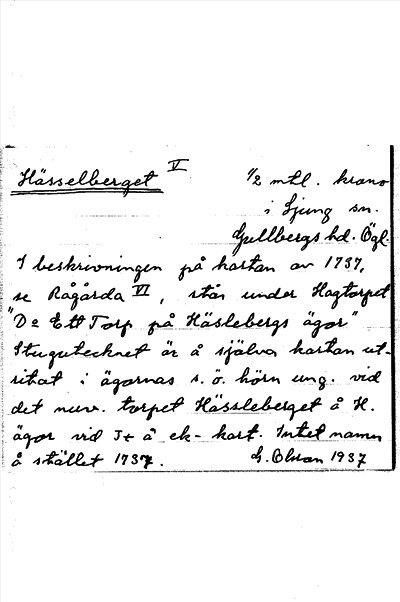 Hässelberget V
1/2 mtl. krono
i Ljung sn.
Gullbergs hd. Ögl.
I beskrivningen på kartan av 1737,
se Rågårda VI, står under Hagtorpet
"Do Ett Torp på Häslebergs ägor"
Stugutecknet är å själva kartan ut-
ritat i ägornas s.ö. hörn ung. vid
det nuv. torpet Hässleberget å H.
ägor vid J+ å ek-kart. Intet namn
å stället 1737. G. Olson 1937